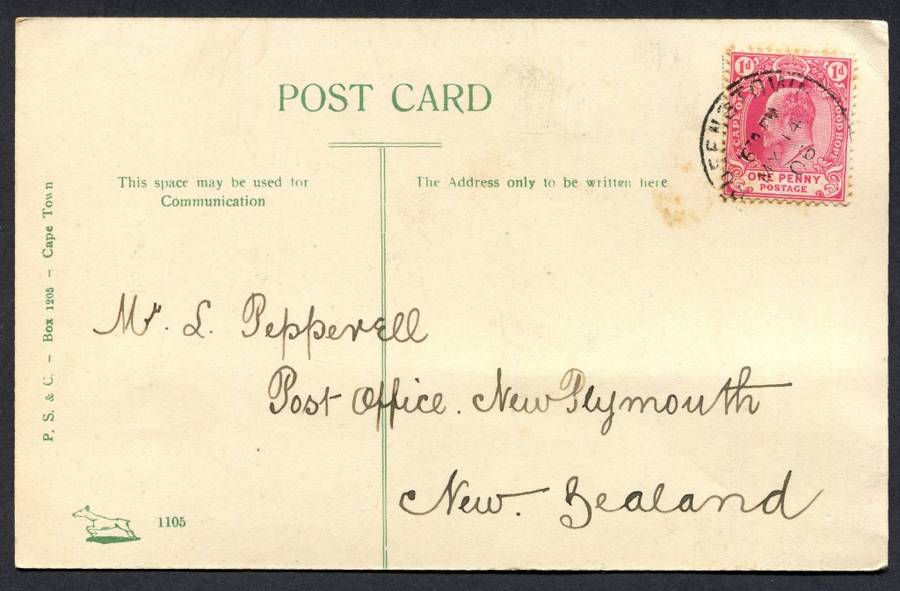 POST CARD
This space may be used for
Communication
The Address only to be written here
P. S. & C. – Box 1205 – Cape Town
1d 1d
CAPE OF GOOD HOPE
ONE PENNY
POSTAGE
Mr. L. Pepperell
Post Office. New Plymouth
New. Zealand
1105